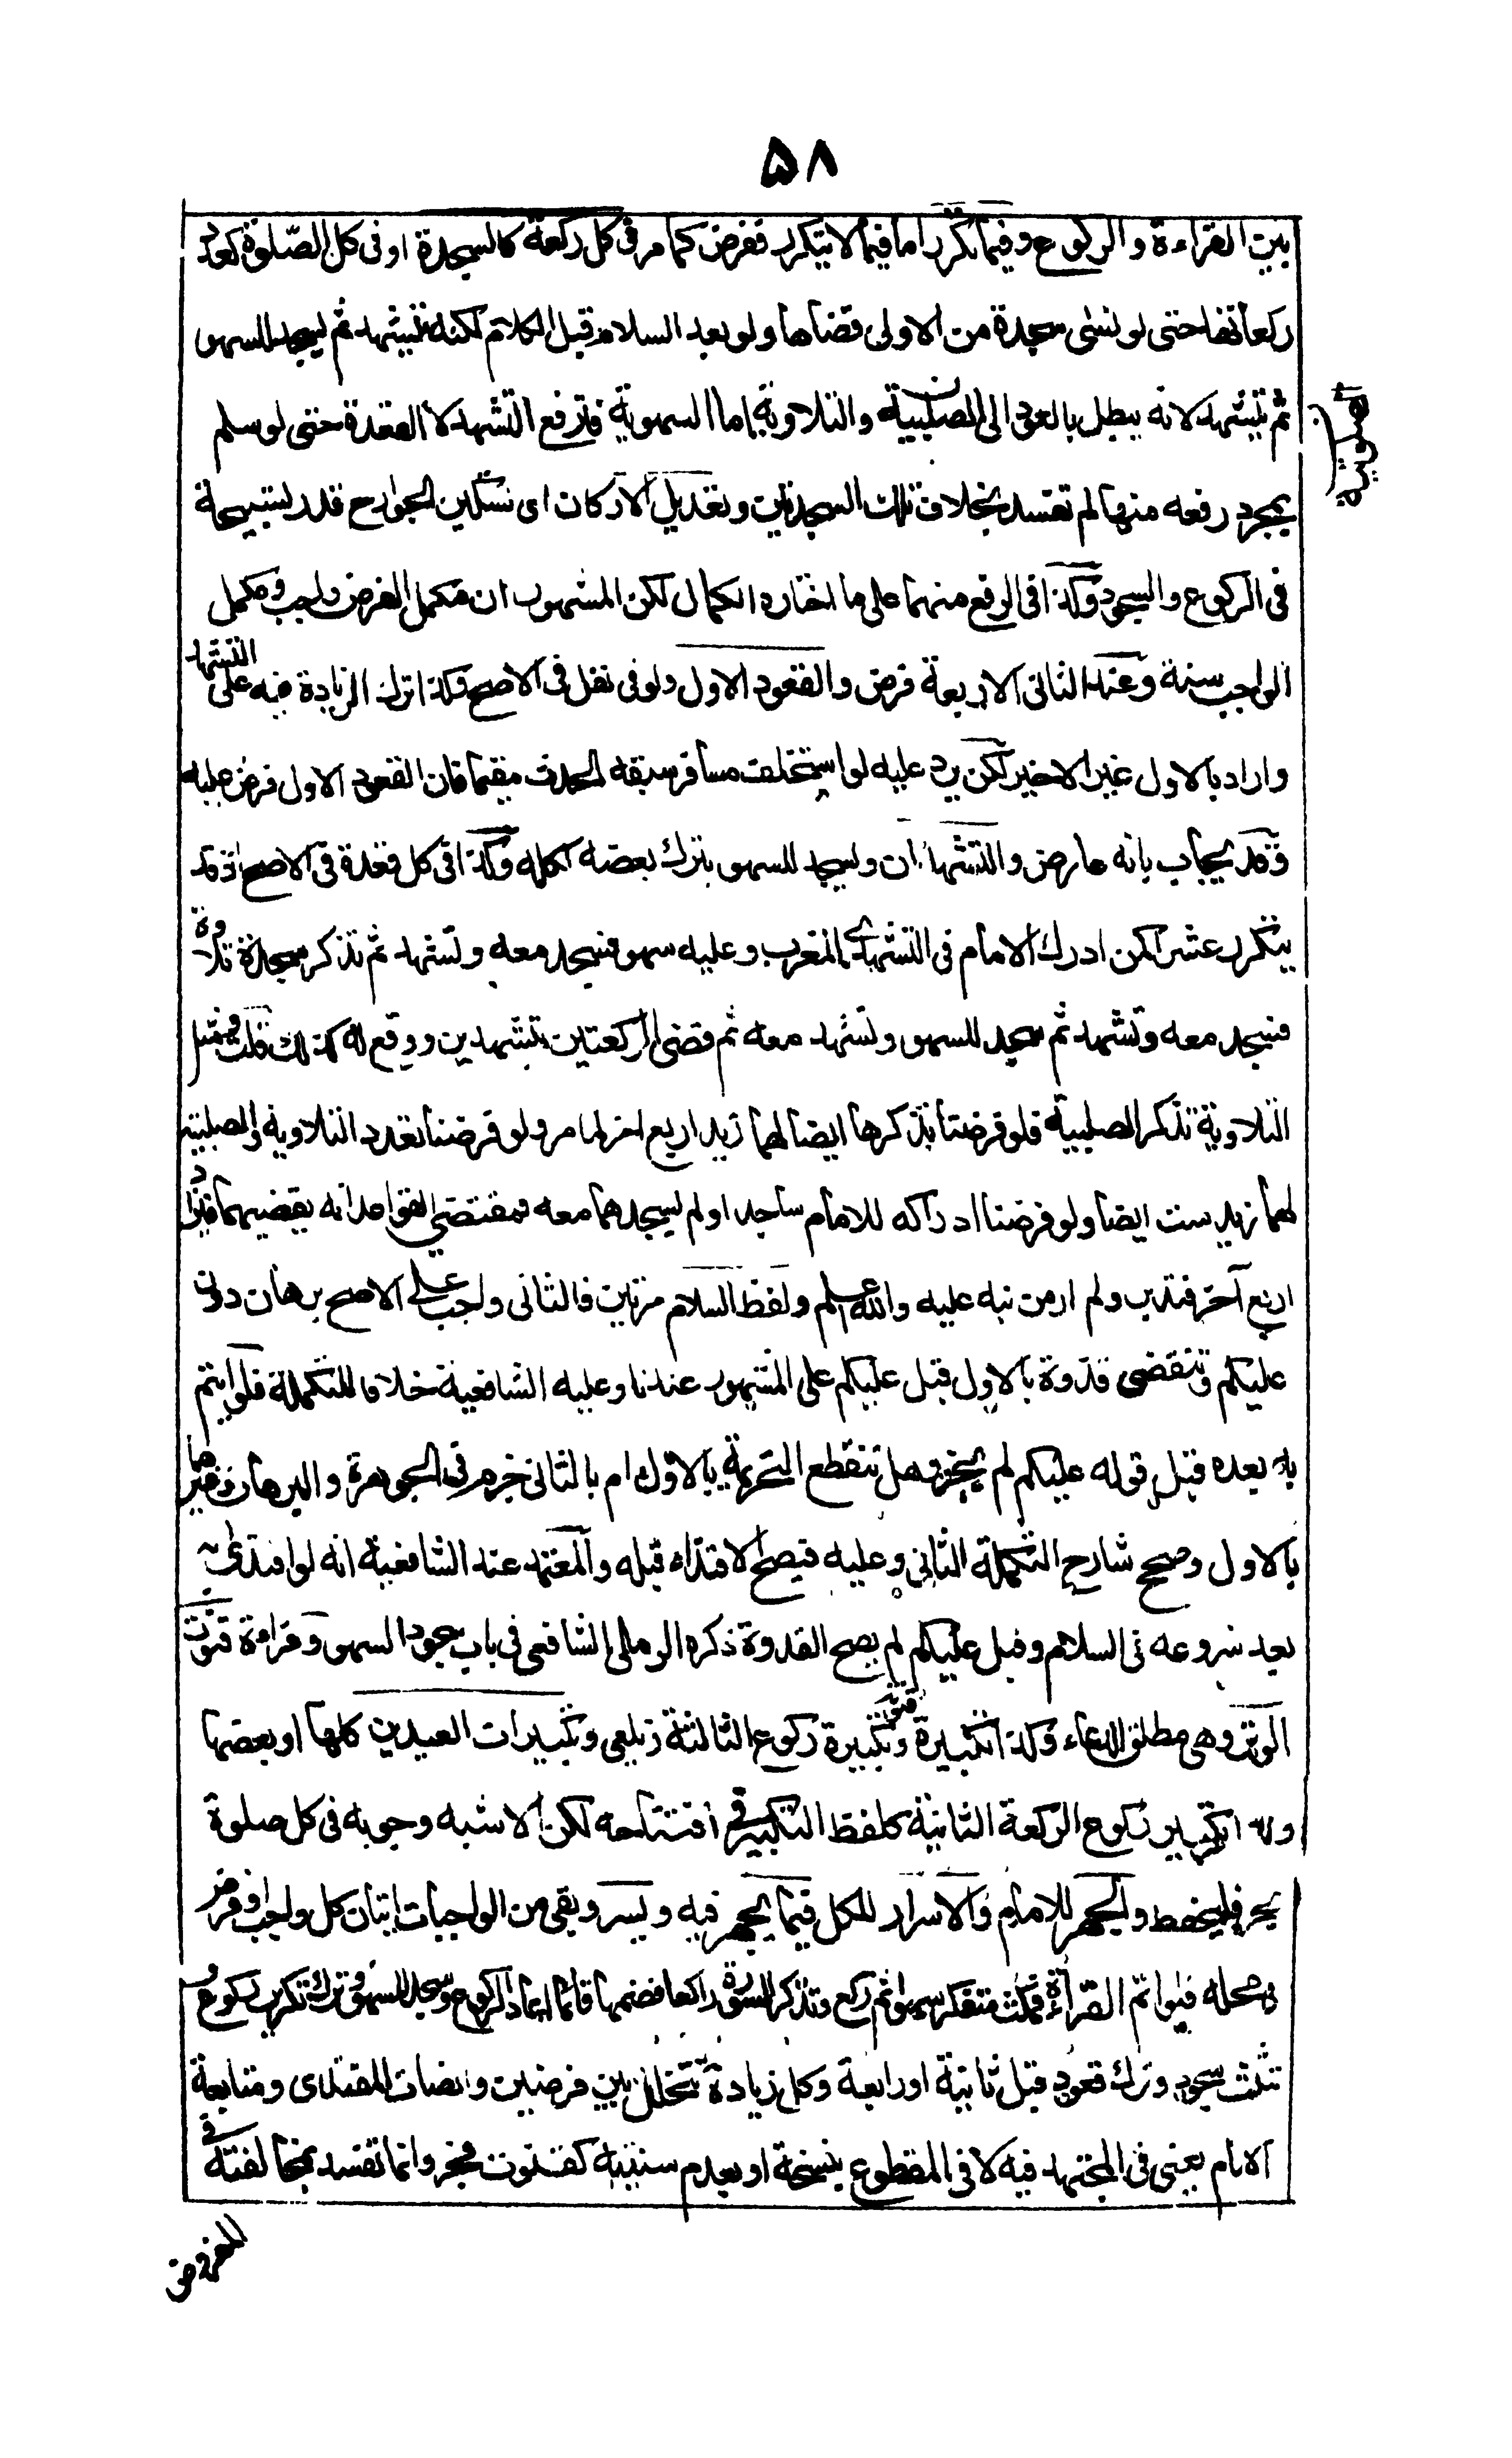 ۵۸
بين القراءة والركوع وفيما تكرر اما فيما لا يتكرر ففرض كما مر فى كل ركعة كالسجدة او فى كل الصّلوة كعدد
ركعاتها حتى لو نسى سجدة من الاولى قضاها ولو بعد السلام قبل الكلام لكنه يتشهد ثم يسجد للسهو
ثم يتشهد لانه يبطل بالعود الى الصلبية والتلاوية اما السهوية فترفع التشهد لا القعدة حتى لو سلم
بمجرد رفعه منها لم تفسد بخلاف تلك السجدتين وتعديل الاركان اى تسكين الجوارح قدر تسبيحة
فى الركوع والسجود وكذا فى الرفع منهما على ما اختاره الكمال لكن المشهور ان مكمل الفرض واجب ومكمل
الواجب سنة وعند الثانى الاربعة فرض والقعود الاول ولو فى نفل فى الاصح وكذا ترك الزيادة فيه على التشهد
واراد بالاول غير الاخير لكن يرد عليه لو استخلف مسافر سبقه الحدث مقيما فان القعود الاول فرض عليه
وقد يجاب بانه عارض والتشهدان ويسجد للسهو بترك بعضه ككله وكذا فى كل قعدة فى الاصح اذ قد
يتكرر عشرا كمن ادرك الامام فى التشهدى المغرب وعليه سهو فسجد معه وتشهد ثم تذكر سجدة تلاوة
فسجد معه وتشهد ثم سجد للسهو وتشهد معه ثم قضى الركعتين بتشهدين ووقع له كذلك قلت ومثل
التلاوية تذكر الصلبية فلو فرضنا تذكرها ايضا لهما زيد اربع اخر لما مر ولو فرضنا تعدد التلاوية والصلبية
لهما زيد ست ايضا ولو فرضنا ادراكه للامام ساجدا ولم يسجدهما معه فمقتضى القواعد انه يقضيهما فيزاد
اربع آخر فتدبر ولم ار من نبه عليه والله اعلم ولفظ السلام مرتين فالثانى واجب على الاصح برهان دون
عليكم وتنقضى قدوة بالاول قبل عليكم على المشهور عندنا وعليه الشافعية خلافا للتكملة فلو ايتم
به بعده قبل قوله عليكم لم يجز وهل تنقطع التحريمة بالاول ام بالثانى جزم فى الجوهرة والبرهان وغيرها
بالاول وصحح شارح التكملة الثانى وعليه فيصح الاقتداء قبله والمعتمد عند الشافعية انه لو اقتدى
بعد شروعه فى السلام وقبل عليكم لم يصح القدوة ذكره الرملى الشافعى فى باب سجود السهو وقراءة قنوت
الوتر وهى مطلق الدعاء وكذا تكبيرة قنوته وتكبيرة ركوع الثالثة زيلعى وتكبيرات العيدين كلها او بعضها
وكذا تكبير ركوع الركعة الثانية كلفظ التكبير فى افتتاحه لكن الاشبه وجوبه فى كل صلوة
بحر فليحفظ والجهر للامام والاسرار للكل فيما يجهر فيه ويسر وبقى من الواجبات اتيان كل واجب او فرض
فى محله فلو اتم القراءة فمكث متفكرا سهوا ثم ركع وتذكر السورة راكعا فضمها قائما اعاد الركوع وسجد للسهو وترك تكرير ركوع
تثليث سجود وترك قعود قبل ثانية او رابعة وكل زيادة تتخلل بين فرضين وانصات المقتدى ومتابعة
الامام يعنى فى المجتهد فيه لا فى المقطوع بنسخه او بعدم سنيته كقنوت فجر وانما تفسد بمخالفته فى
الفروض